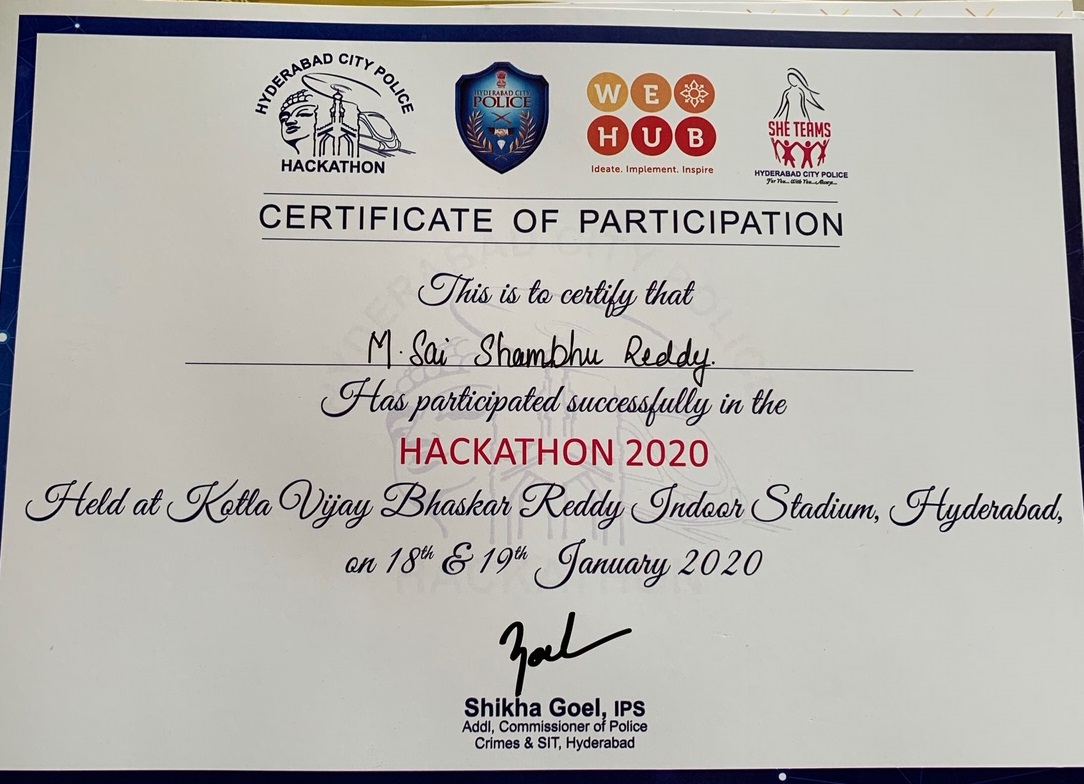 HYDERABAD CITY POLICE
HACKATHON
HYDERABAD CITY
POLICE
WE
HUB
Ideate. Implement. Inspire
SHE TEAMS
HYDERABAD CITY POLICE
For You... With You... Always...
CERTIFICATE OF PARTICIPATION
This is to certify that
M. Sai Shambhu Reddy.
Has participated successfully in the
HACKATHON 2020
Held at Kotla Vijay Bhaskar Reddy Indoor Stadium, Hyderabad,
on 18th & 19th January 2020
Shikha Goel, IPS
Addl, Commissioner of Police
Crimes & SIT, Hyderabad
HYDERABAD CITY POLICE
HACKATHON